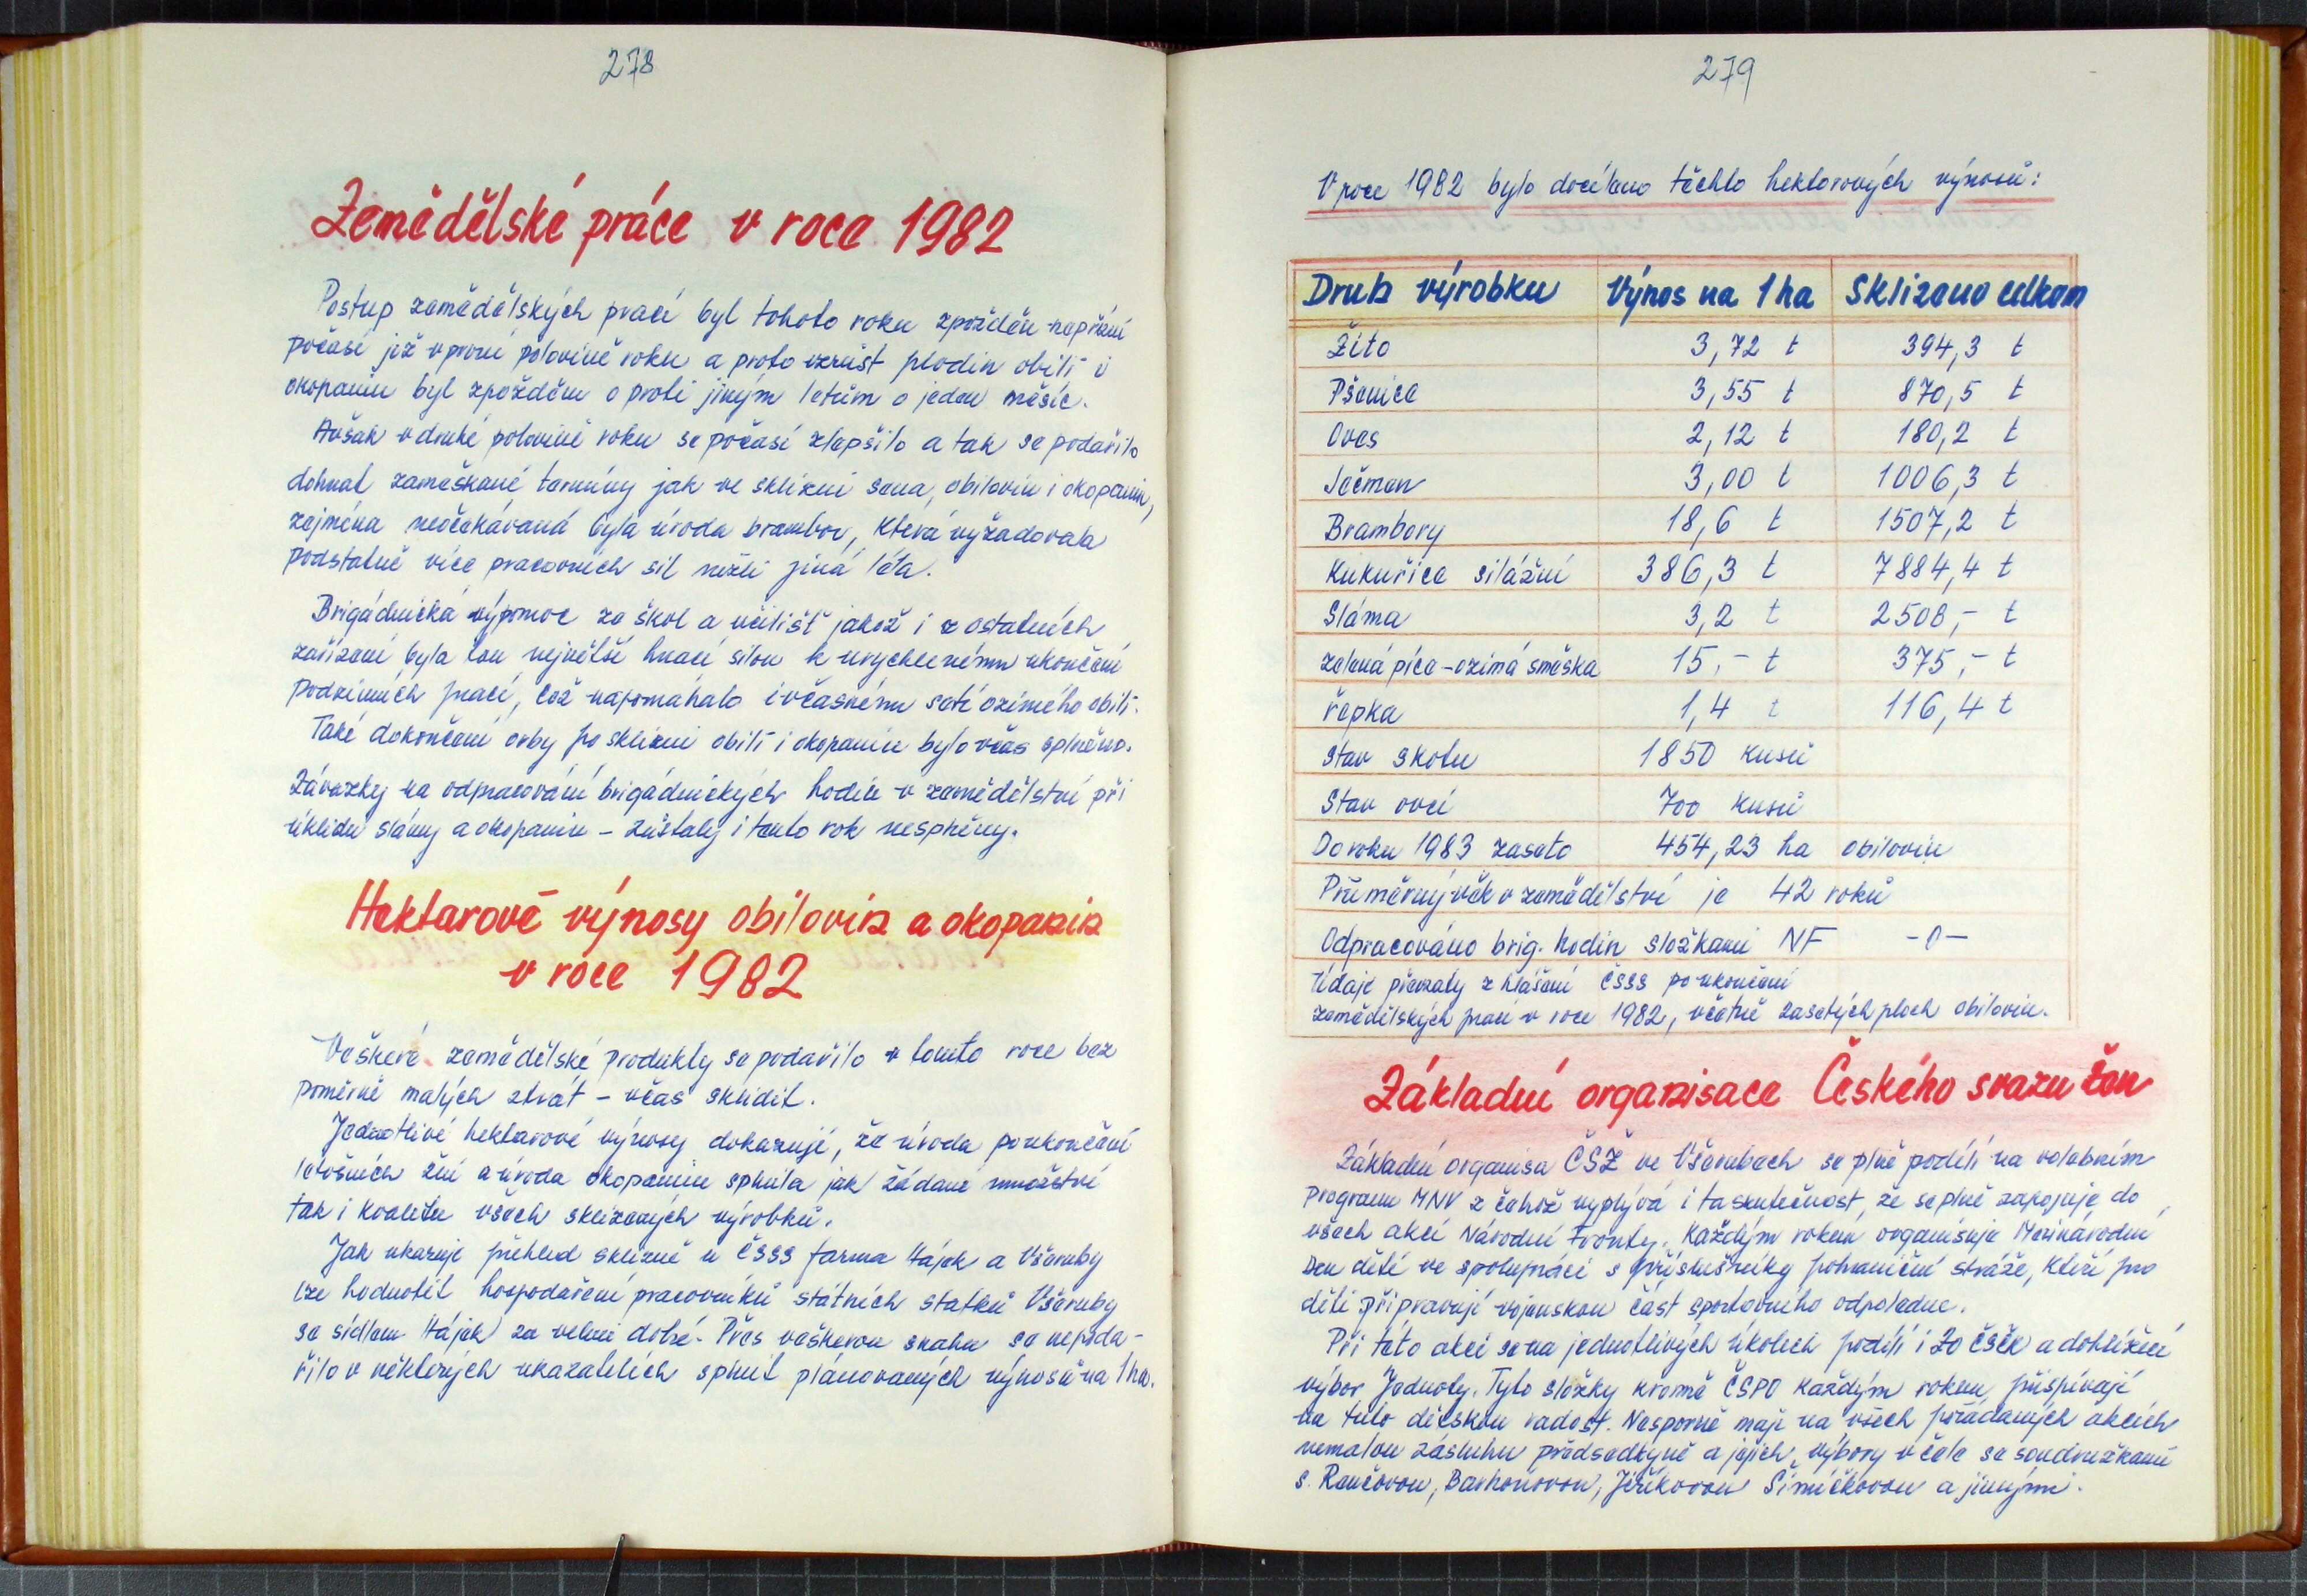 278
Zemědělské práce v roce 1982
Postup zemědělských prací byl tohoto roku zpožděn nepřízní
počasí již v první polovině roku a proto vzrůst plodin obilí i
okopanin byl zpožděn o proti jiným letům o jeden měsíc.
Avšak v druhé polovině roku se počasí zlepšilo a tak se podařilo
dohnat zameškané termíny jak ve sklizni sena, obilovin i okopanin,
zejména neočekávaná byla úroda brambor, která vyžadovala
podstatně více pracovních sil nežli jiná léta.
Brigádnická výpomoc ze škol a učilišť jakož i z ostatních
zařízení byla tou největší hnací silou k urychlenému ukončení
podzimních prací, což napomáhalo i včasnému setí ozimého obilí.
Také dokončení orby po sklizni obilí i okopanin bylo včas splněno.
Závazky na odpracování brigádnických hodin v zemědělství při
úklidu slámy a okopanin – zůstaly i tento rok nesplněny.
Hektarové výnosy obilovin a okopanin
v roce 1982
Veškeré zemědělské produkty se podařilo v tomto roce bez
poměrně malých ztrát – včas sklidit.
Jednotlivé hektarové výnosy dokazují, že úroda po ukončení
letošních žní a úroda okopanin splnila jak žádané množství
tak i kvalitu všech sklizených výrobků.
Jak ukazuje přehled sklizně u ČSSS farma Hájek a Všeruby
lze hodnotit hospodaření pracovníků státních statků Všeruby
se sídlem Hájek za velmi dobré. Přes veškerou snahu se nepoda-
řilo v některých ukazatelích splnit plánovaných výnosů na 1 ha.
279
V roce 1982 bylo docíleno těchto hektarových výnosů:
Druh výrobku Výnos na 1 ha Sklizeno celkem
Žito 3,72 t 394,3 t
Pšenice 3,55 t 870,5 t
Oves 2,12 t 180,2 t
Ječmen 3,00 t 1006,3 t
Brambory 18,6 t 1507,2 t
Kukuřice silážní 386,3 t 7884,4 t
Sláma 3,2 t 2508,- t
zelená píce – ozimá směska 15,- t 375,- t
řepka 1,4 t 116,4 t
Stav skotu 1850 kusů
Stav ovcí 700 kusů
Do roku 1983 zaseto 454,23 ha obilovin
Průměrný věk v zemědělství je 42 roků
Odpracováno brig. hodin složkami NF -0-
Údaje převzaty z hlášení ČSSS po ukončení
zemědělských prací v roce 1982, včetně zasetých ploch obilovin.
Základní organisace Českého svazu žen
Základní organisa ČSŽ ve Všerubech se plně podílí na volebním
programu MNV z čehož vyplývá i ta skutečnost, že se plně zapojuje do
všech akcí Národní fronty. Každým rokem organisuje Mezinárodní
Den dětí ve spolupráci s příslušníky pohraniční stráže, kteří pro
děti připravují vojenskou část sportovního odpoledne.
Při této akci se na jednotlivých úkolech podílí i Zo ČSČK a dohlížecí
výbor Jednoty. Tyto složky kromě ČSPO každým rokem přispívají
na tuto dětskou radost. Nesporně mají na všech pořádaných akcích
nemalou zásluhu předsedkyně a jejich výbory v čele se soudružkami
s. Renčovou, Barhoňovou, Jiříkovou Šimíčkovou a jinými.